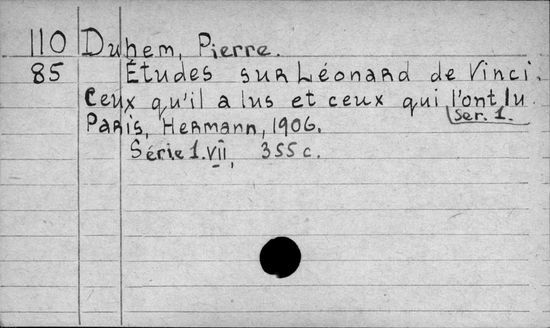 110 Duhem, Pierre.
85 Études sur Léonard de Vinci.
Ceux qu'il a lus et ceux qui l'ont lu.
Ser. 1.
Paris, Hermann, 1906.
Série 1. VII, 355 c.